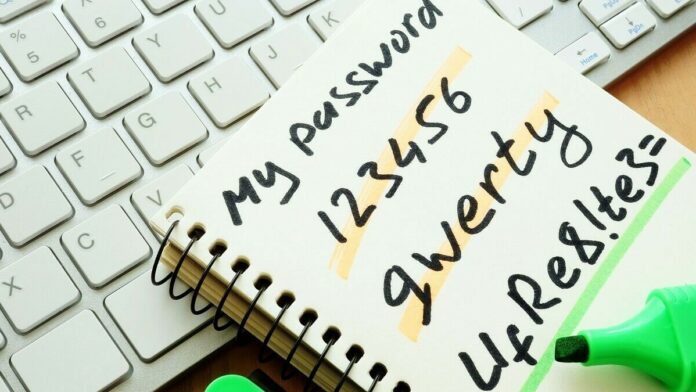 My password
123456
qwerty
UfRe8!te3=
%
5
6
R
T
Y
U
F
G
H
J
X
C
V
Home
PgUp
PgDn